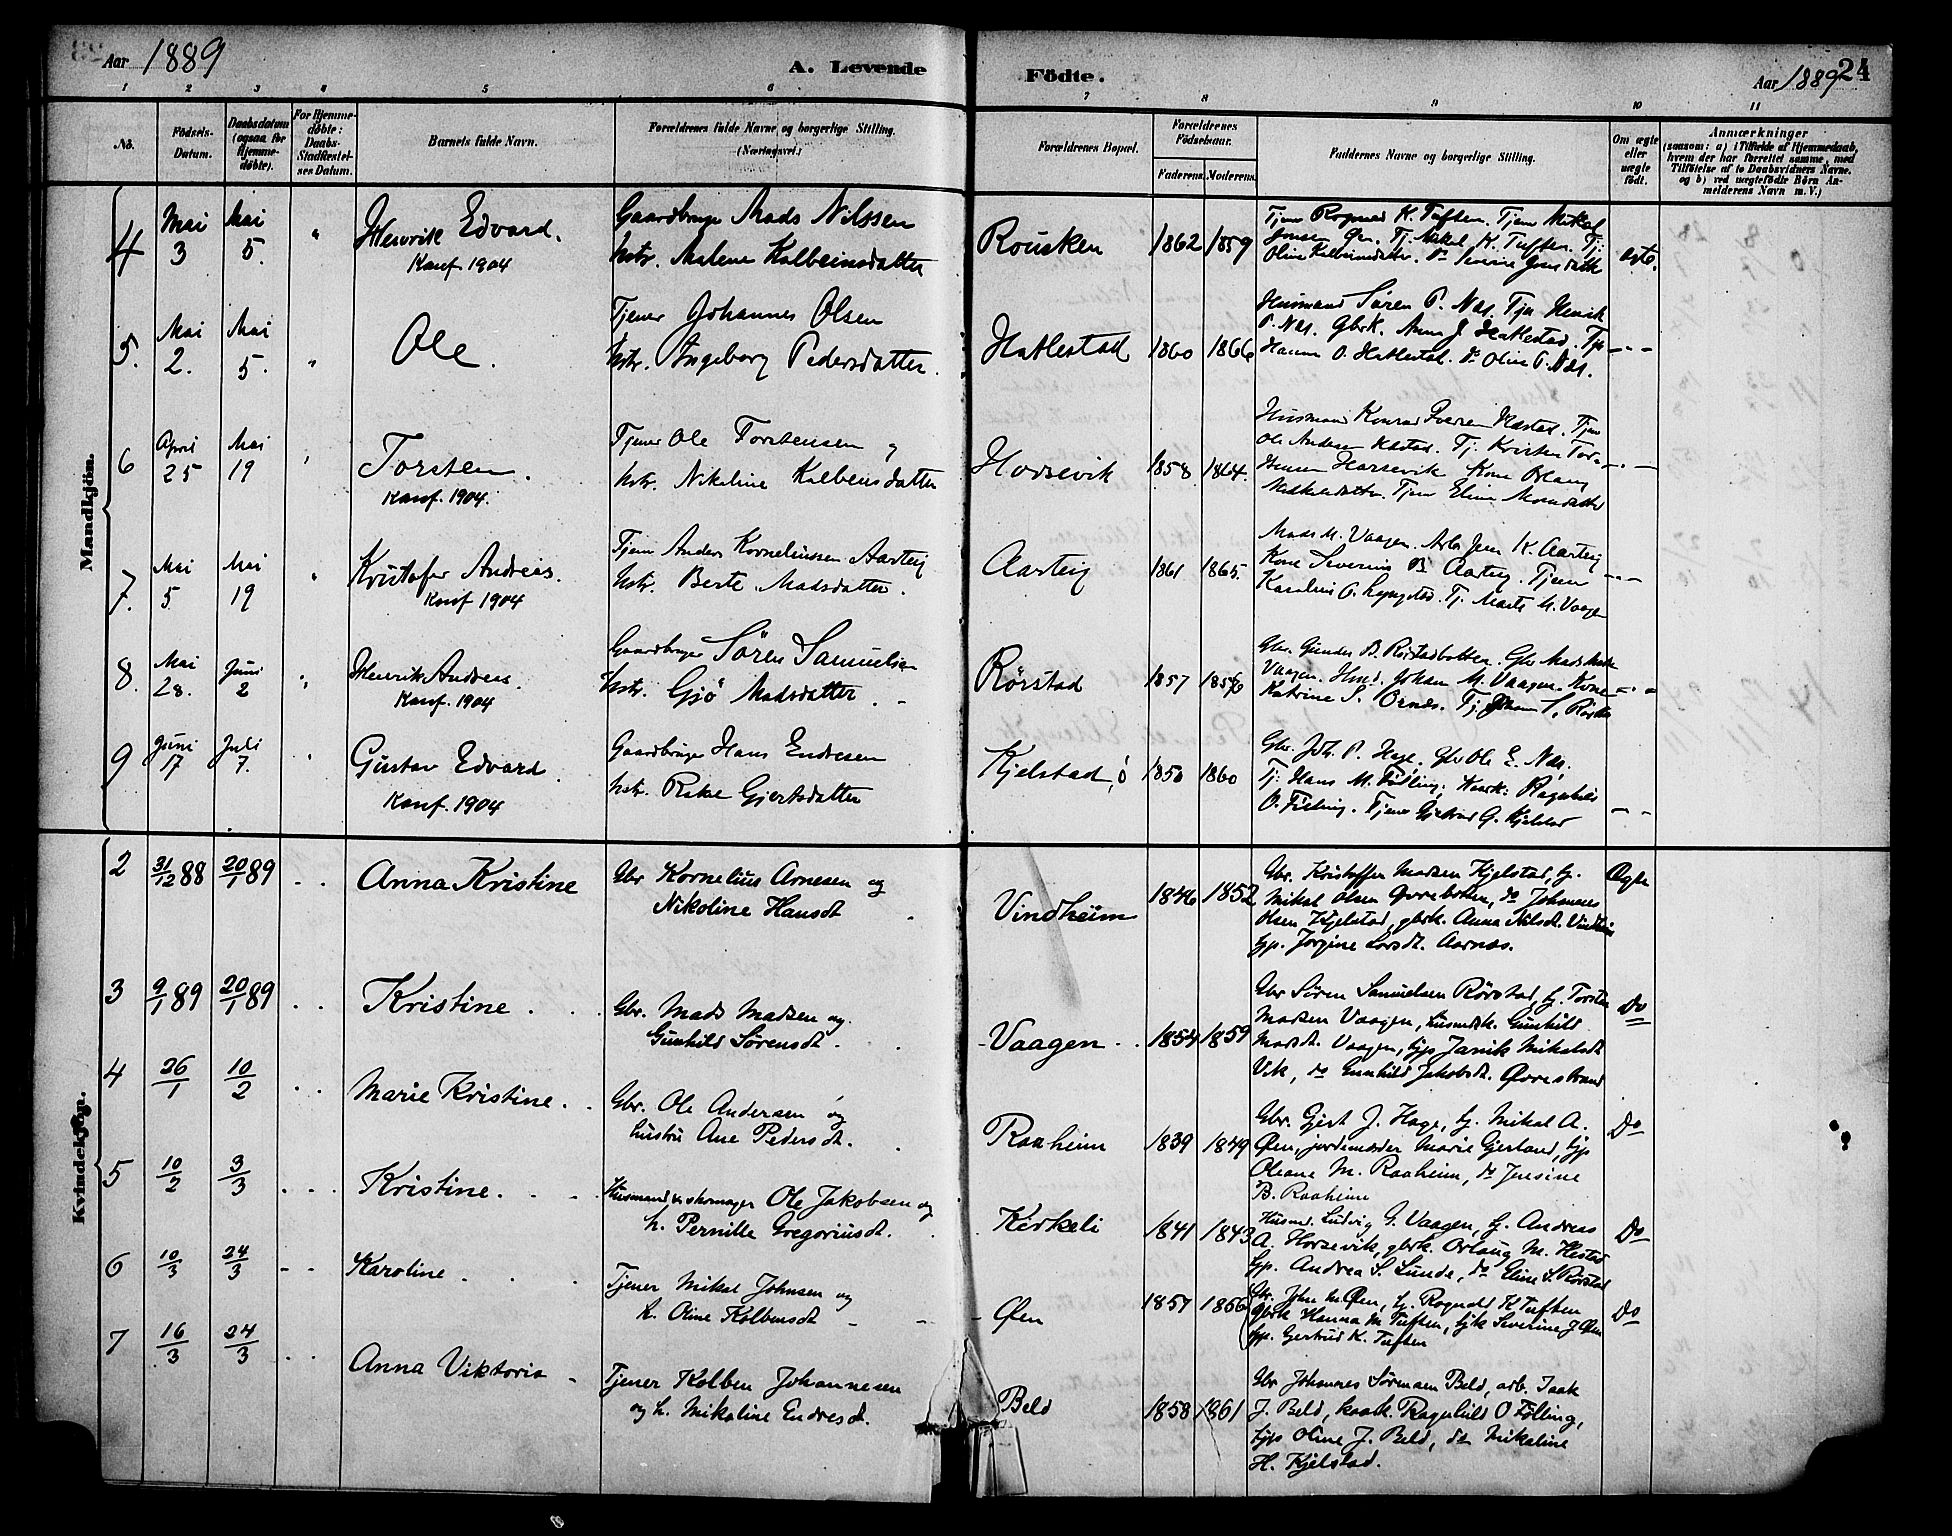 Aar 1889
A. Levende
Födte.
Aar 1889
24
1 2 3 4 5 6 7 8 9 10 11
No.
Födsels-Datum.
Daabsdatum (ogsaa for Hjemmedöbte).
For Hjemmedöbte: Daabs-Stadfæstelses Datum.
Barnets fulde Navn.
Forældrenes fulde Navne og borgerlige Stilling.
(Næringsvei.)
Forældrenes Bopæl.
Forældrenes Födselsaar.
Faderens. Moderens.
Faddernes Navne og borgerlige Stilling.
Om ægte eller uægte födt.
Anmærkninger
(saasom: a) i Tilfælde af Hjemmedaab, hvem der har forrettet samme, med Tilföielse af to Daabsvidners Navne, og b) ved uægtefödte Börn Anmelderens Navn m. V.)
Mandkjön.
4 Mai 3 Mai 5. " Henrik Edvard. Konf. 1904
Gaardbruger Mads Nilssen
Hstr. Malene Kolbeinsdatter
Rousken 1862 1859
Oline Kolbeinsdatter. do Severine Jonsdatter
ægte.
5. Mai 2. Mai 5. " Ole.
Tjener Johannes Olsen
Hstr. Ingeborg Pedersdatter.
Hatlestad 1860 1866
Husmand Søren P. Næs. Tjn Henrik
P. Næs. Gbrk. Anna J. Hatlestad. Tp
Hanna O. Hatlestad. do Oline P. Næs.
" "
6 April 25 Mai 19 " Torsten. Konf. 1904.
Tjener Ole Torstensen og
Hstr. Nikoline Kolbensdatter
Horsevik 1858 1864.
" "
7. Mai 5 Mai 19 " Kristofer Andreas. Konf 1904
Tjener Anders Korneliussen Aarteig
Hstr. Berte Madsdatter.
Aarteig 1861 1865.
Mads M. Vaagen. Arb. Jens K. Aarteig
Kone Severine B. Aarteig. Tjener
Karoline O. Lyngstad. Tj. Marte M. Vaagen
" "
8. Mai 28. Juni 2 " Henrik Andreas. Konf. 1904
Gaardbruger Søren Samuelsen
Hstr. Gjø Madsdatter.
Rørstad 1857 1856
Gbr. Gunder B. Rørstadbotten. Gbr Mads Mads
Vaagen. Hmd. Johan M. Vaagen. Kone
Katrine S. Ornæs. Tj. S. Rørstad
" "
9 Juni 17 Juli 7. " Gustav Edvard. Konf. 1904
Gaardbruger Hans Endresen
Hstr. Rikke Gjertsdatter
Kjelstad, ö 1850 1860
Gbr. Joh. P. Hage. Gbr Ole E. Næs.
Tj. Hans M. Følling, Kaark. Ragnhild
O. Følling. Tjener Gjertrud G. Kjelstad
" "
Kvindekjön.
2 31/12 88 20/1 89 " Anna Kristine
Gbr Kornelius Arnesen og
Nikoline Hansdt
Vindheim 1846 1852
Gbr. Kristoffer Madsen Kjelstad, Tj.
Mikal Olsen Ørrebotten, do Johannes
Olsen Kjelstad, gbrk. Anna Nilsdt. Vindheim
tjp. Jorgine Larsdt. Aarnæs.
Ægte
3 9/1 89 20/1 89 " Kristine.
Gbr. Mads Madsen og
Gunhild Sørensdt.
Vaagen 1854 1859
Gbr Søren Samuelsen Rørstad, tj. Torsten
Madsen Vaagen, husmdk. Gunhild
Madsdt. Vaagen, tjp Janik Mikalsdt
Vik, do Gunhild Jakobsdt. Ørrestrand
Do
4 26/1 10/2 " Marie Kristine.
Gbr. Ole Andersen og
hustru Ane Pedersdt.
Raaheim 1839 1849
Gbr. Gjert J. Hage, tj. Mikal A.
Øen, jordemoder Marie Gjerland, tjp
Oleane M. Raaheim, do Jensine
B. Raaheim
Do
5 10/2 3/3 " Kristine.
Husmand & skomager Ole Jakobsen og
h. Pernille Gregoriusdt.
Kirkeli 1841 1843
Husmd. Ludvig G. Vaagen, tj. Andreas
A. Horsevik, gbrk. Orlaug M. Hestad
tjp. Andrea S. Lunde, do Eline S. Rørstad
Do
6 10/3 24/3 " Karoline.
Tjener Mikal Johnsen og
h. Oline Kolbensdt
Øen 1857 1856
Gbr. John M. Øen, tj. Rognald K Tuften
Gbrk Hanna M Tuften, tjk Severine J Øen
tjp. Gertrud K. Tuften
Do
7 16/3 24/3 " Anna Viktoria
Tjener Kolben Johannesen
og h. Nikoline Endresdt.
Beld 1858 1861
Gbr Johannes Sørensen Beld, arb. Isak
J. Beld, kaark. Ragnhild O Følling,
tjp Oline J. Beld, do Nikoline
H. Kjelstad.